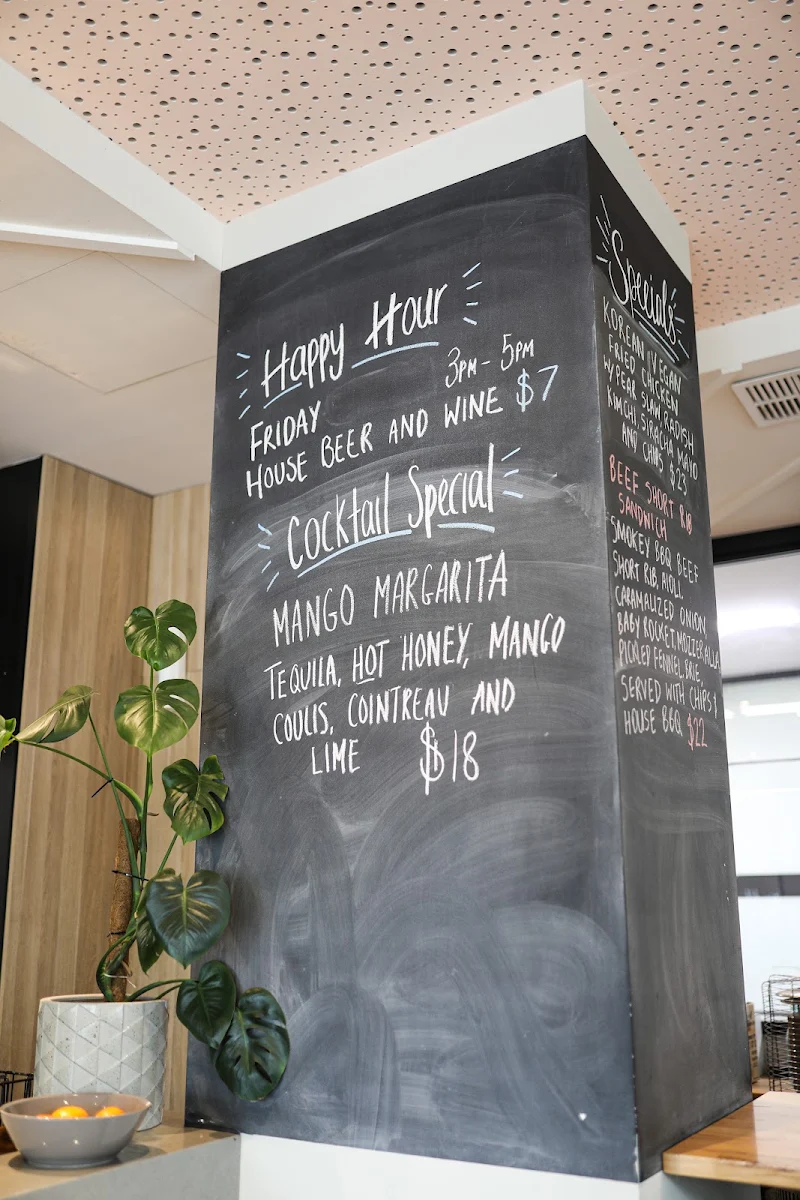 Happy Hour
3PM - 5PM
FRIDAY
HOUSE BEER AND WINE $7
Cocktail Special
MANGO MARGARITA
TEQUILA, HOT HONEY, MANGO
COULIS, COINTREAU AND
LIME $18
Specials
KOREAN VEGAN
FRIED CHICKEN
W/ PEAR SLAW RADISH
KIMCHI, SIRACHA MAYO
AND CHIPS $23
BEEF SHORT RIB
SANDWICH
SMOKEY BBQ BEEF
SHORT RIB, AIOLI,
CARAMALIZED ONION,
BABY ROCKET, MOZZERALLA
PICKLED FENNEL, BRIE,
SERVED WITH CHIPS +
HOUSE BBQ $22